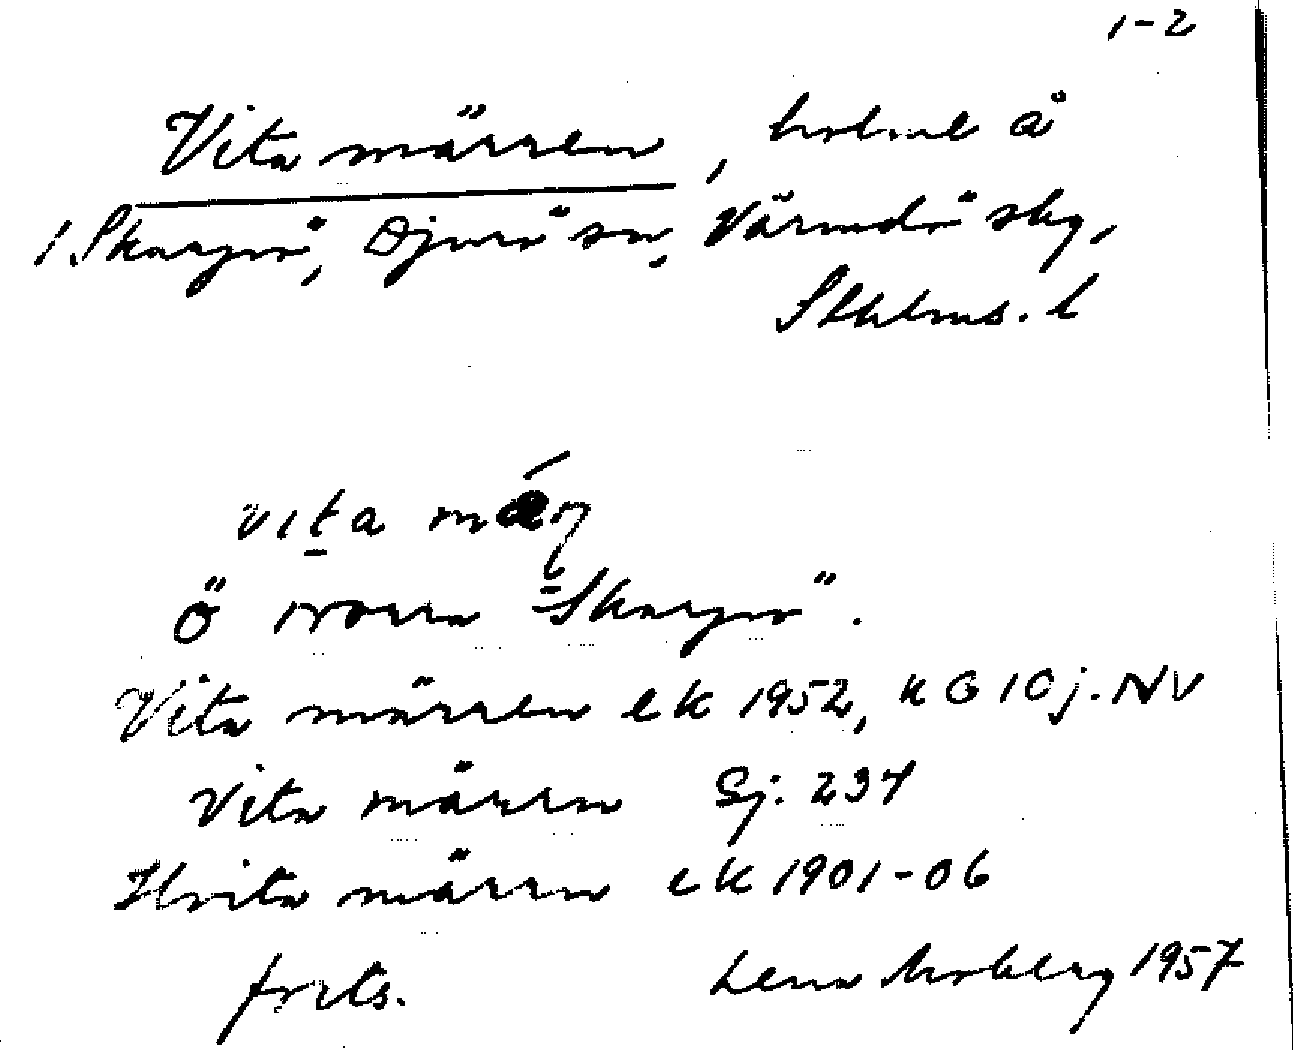 1-2
Vita märren, holme å
1. Skarpö, Djurö sn, Värmdö skg,
Sthlms. l
vita mär̥
Ö norra "Skarpö".
Vita märren ek 1952, k G 10 j. NV
Vita märrn Sj. 237
Hvita märrn ek 1901-06
forts. Lena Moberg 1957